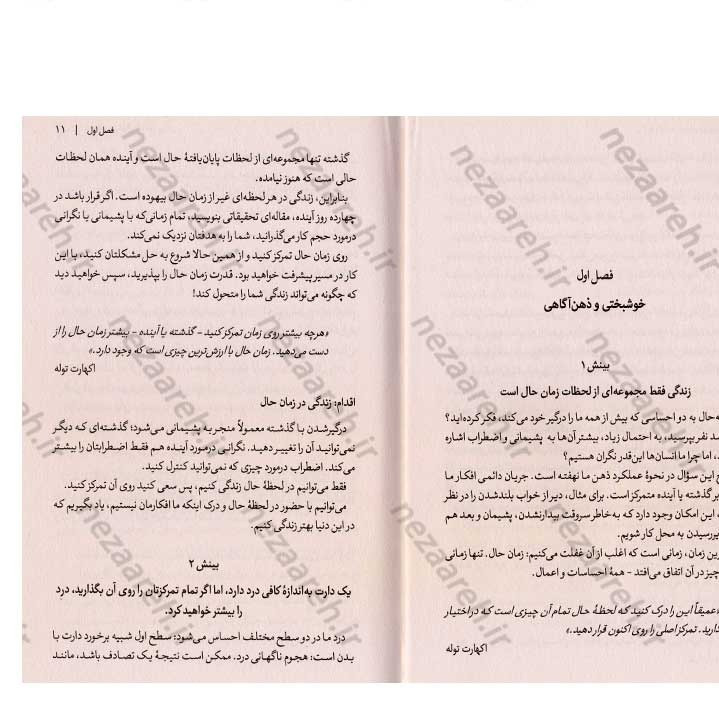 فصل اول
خوشبختی و ذهن‌آگاهی
بینش ۱
زندگی فقط مجموعه‌ای از لحظات زمان حال است
حال به دو احساسی که بیش از همه ما را درگیر خود می‌کند، فکر کرده‌اید؟
نفر بپرسید، به احتمال زیاد، بیشتر آن‌ها به پشیمانی و اضطراب اشاره
اما چرا ما انسان‌ها این‌قدر نگران هستیم؟
این سؤال در نحوهٔ عملکرد ذهن ما نهفته است. جریان دائمی افکار ما
گذشته یا آینده متمرکز است. برای مثال، دیر از خواب بلندشدن را در نظر
این امکان وجود دارد که به‌خاطر سروقت بیدارنشدن، پشیمان و بعد هم
دیررسیدن به محل کار شویم.
زمان، زمانی است که اغلب از آن غفلت می‌کنیم: زمان حال. تنها زمانی
چیز در آن اتفاق می‌افتد - همهٔ احساسات و اعمال.
«عمیقاً این را درک کنید که لحظهٔ حال تمام آن چیزی است که در اختیار
دارید. تمرکز اصلی را روی اکنون قرار دهید.»
اکهارت توله
فصل اول | ۱۱
گذشته تنها مجموعه‌ای از لحظات پایان‌یافتهٔ حال است و آینده همان لحظات
حالی است که هنوز نیامده.
بنابراین، زندگی در هر لحظه‌ای غیر از زمان حال بیهوده است. اگر قرار باشد در
چهارده روز آینده، مقاله‌ای تحقیقاتی بنویسید، تمام زمانی‌که با پشیمانی یا نگرانی
درمورد حجم کار می‌گذرانید، شما را به هدفتان نزدیک نمی‌کند.
روی زمان حال تمرکز کنید و از همین حالا شروع به حل مشکلتان کنید، با این
کار در مسیر پیشرفت خواهید بود. قدرت زمان حال را بپذیرید، سپس خواهید دید
که چگونه می‌تواند زندگی شما را متحول کند!
«هرچه بیشتر روی زمان تمرکز کنید - گذشته یا آینده - بیشتر زمان حال را از
دست می‌دهید. زمان حال با ارزش‌ترین چیزی است که وجود دارد.»
اکهارت توله
اقدام: زندگی در زمان حال
درگیرشدن با گذشته معمولاً منجر به پشیمانی می‌شود؛ گذشته‌ای که دیگر
نمی‌توانید آن را تغییر دهید. نگرانی درمورد آینده هم فقط اضطرابتان را بیشتر
می‌کند. اضطراب درمورد چیزی که نمی‌توانید کنترل کنید.
فقط می‌توانیم در لحظهٔ حال زندگی کنیم، پس سعی کنید روی آن تمرکز کنید.
می‌توانیم با حضور در لحظهٔ حال و درک اینکه ما افکارمان نیستیم، یاد بگیریم که
در این دنیا بهتر زندگی کنیم.
بینش ۲
یک دارت به‌اندازهٔ کافی درد دارد، اما اگر تمام تمرکزتان را روی آن بگذارید، درد
را بیشتر خواهید کرد.
درد ما در دو سطح مختلف احساس می‌شود: سطح اول شبیه برخورد دارت با
بدن است: هجوم ناگهانی درد. ممکن است نتیجهٔ یک تصادف باشد، مانند
nezaareh.ir
nezaareh.ir
nezaareh.ir
nezaareh.ir
nezaareh.ir
nezaareh.ir
nezaareh.ir
nezaareh.ir
nezaareh.ir
nezaareh.ir
nezaareh.ir